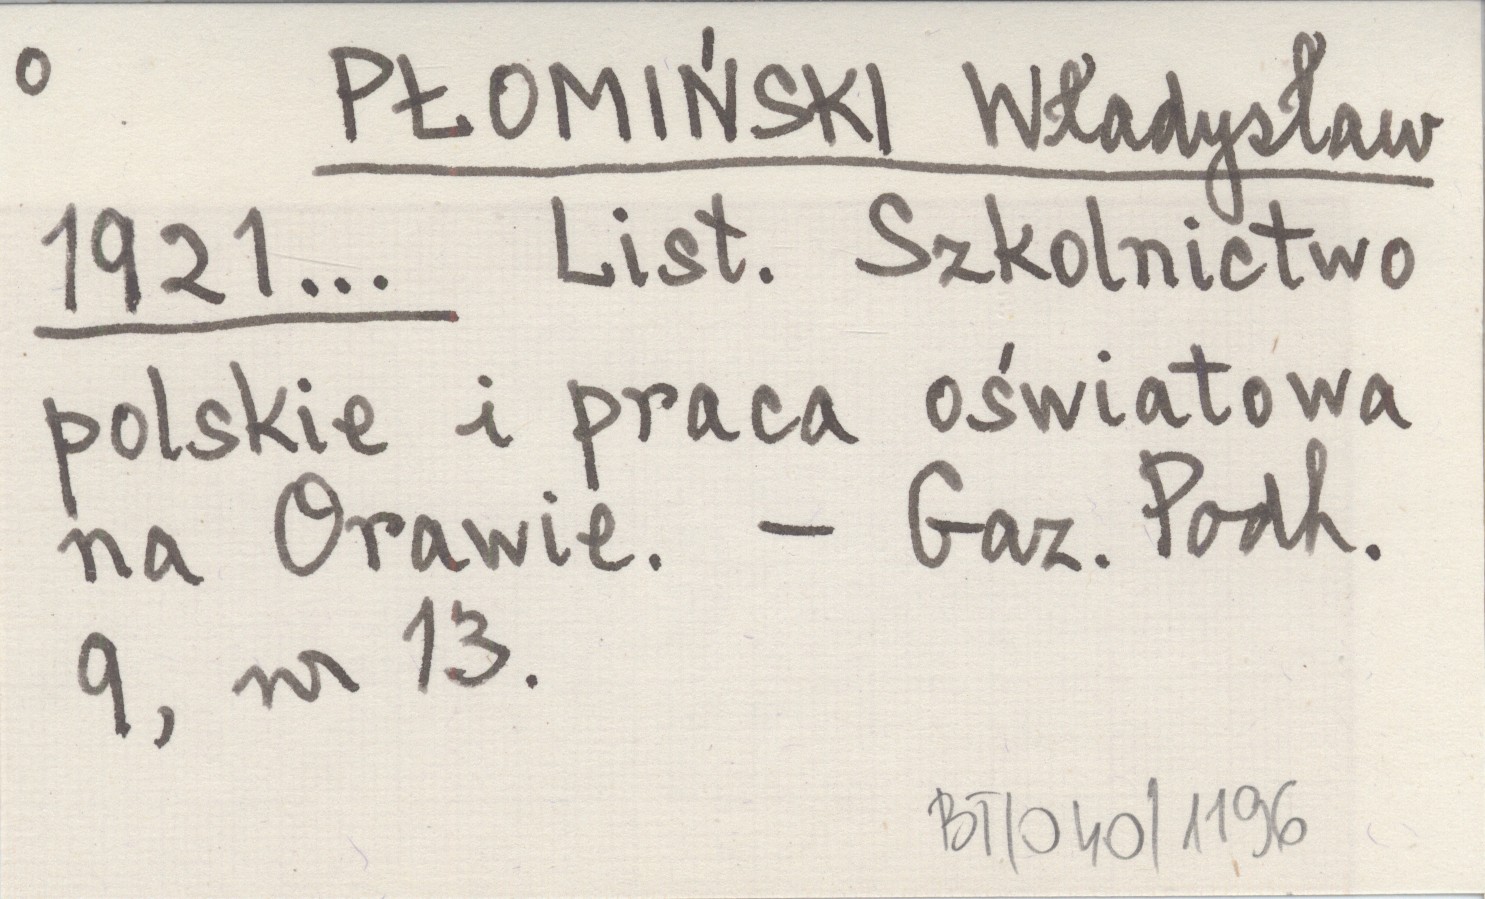 o PŁOMIŃSKI Władysław
1921... List. Szkolnictwo
polskie i praca oświatowa
na Orawie. – Gaz. Podh.
9, nr 13.
BT/040/1196